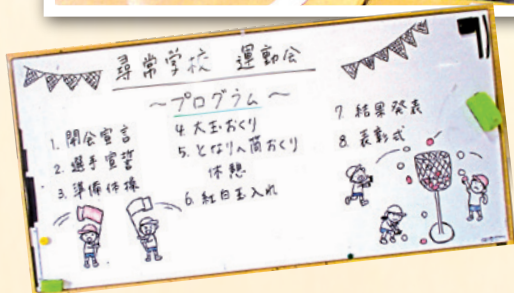 尋常学校 運動会
～プログラム～
1. 開会宣言
2. 選手宣誓
3. 準備体操
4. 大玉おくり
5. となり おくり
休憩
6. 紅白玉入れ
7. 結果発表
8. 表彰式